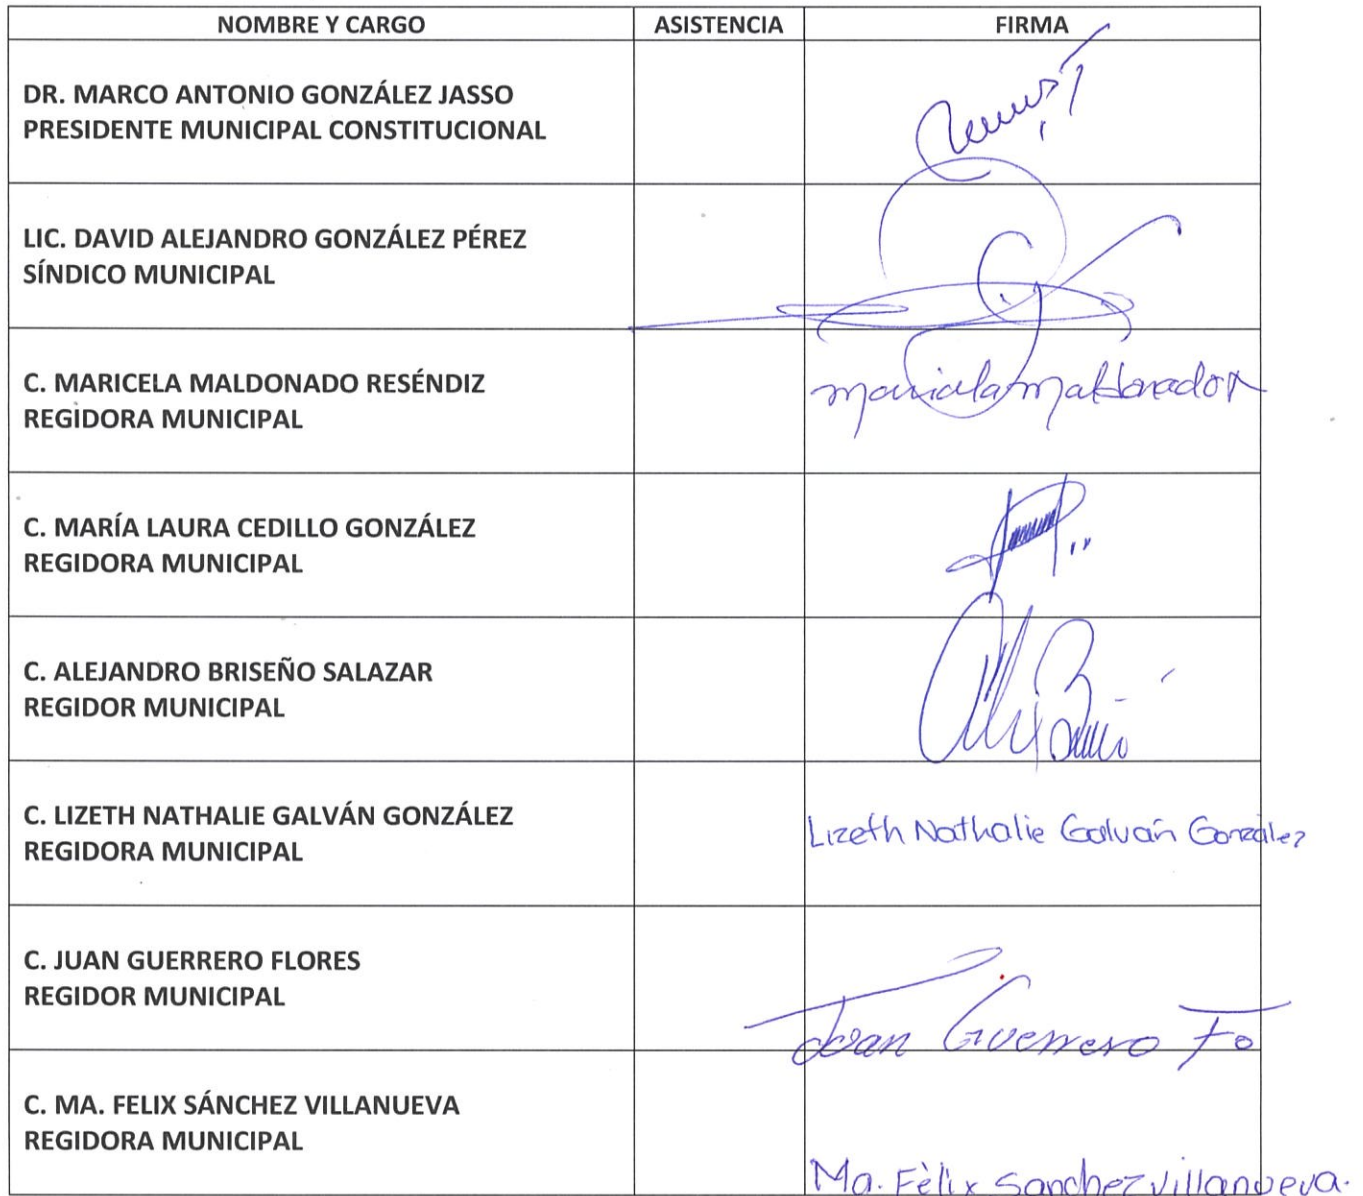 NOMBRE Y CARGO ASISTENCIA FIRMA
DR. MARCO ANTONIO GONZÁLEZ JASSO
PRESIDENTE MUNICIPAL CONSTITUCIONAL
LIC. DAVID ALEJANDRO GONZÁLEZ PÉREZ
SÍNDICO MUNICIPAL
C. MARICELA MALDONADO RESÉNDIZ
REGIDORA MUNICIPAL
maricela maldonado R
C. MARÍA LAURA CEDILLO GONZÁLEZ
REGIDORA MUNICIPAL
C. ALEJANDRO BRISEÑO SALAZAR
REGIDOR MUNICIPAL
C. LIZETH NATHALIE GALVÁN GONZÁLEZ
REGIDORA MUNICIPAL
Lizeth Nathalie Galván González
C. JUAN GUERRERO FLORES
REGIDOR MUNICIPAL
Juan Guerrero Fo
C. MA. FELIX SÁNCHEZ VILLANUEVA
REGIDORA MUNICIPAL
Ma. Félix Sanchez Villanueva.